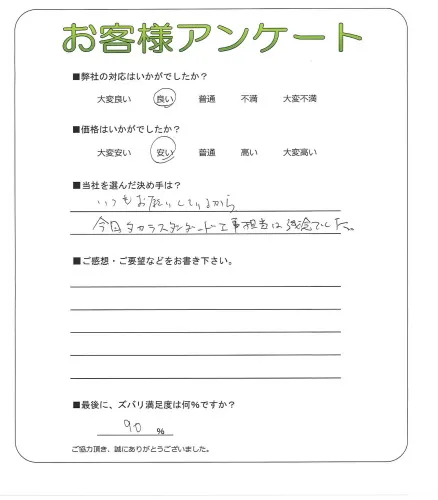 お客様アンケート
■弊社の対応はいかがでしたか？
大変良い 良い 普通 不満 大変不満
■価格はいかがでしたか？
大変安い 安い 普通 高い 大変高い
■当社を選んだ決め手は？
いつもお願いしているから
今回タカラスタンダード工事担当は残念でした。
■ご感想・ご要望などをお書き下さい。
■最後に、ズバリ満足度は何％ですか？
90 ％
ご協力頂き、誠にありがとうございました。